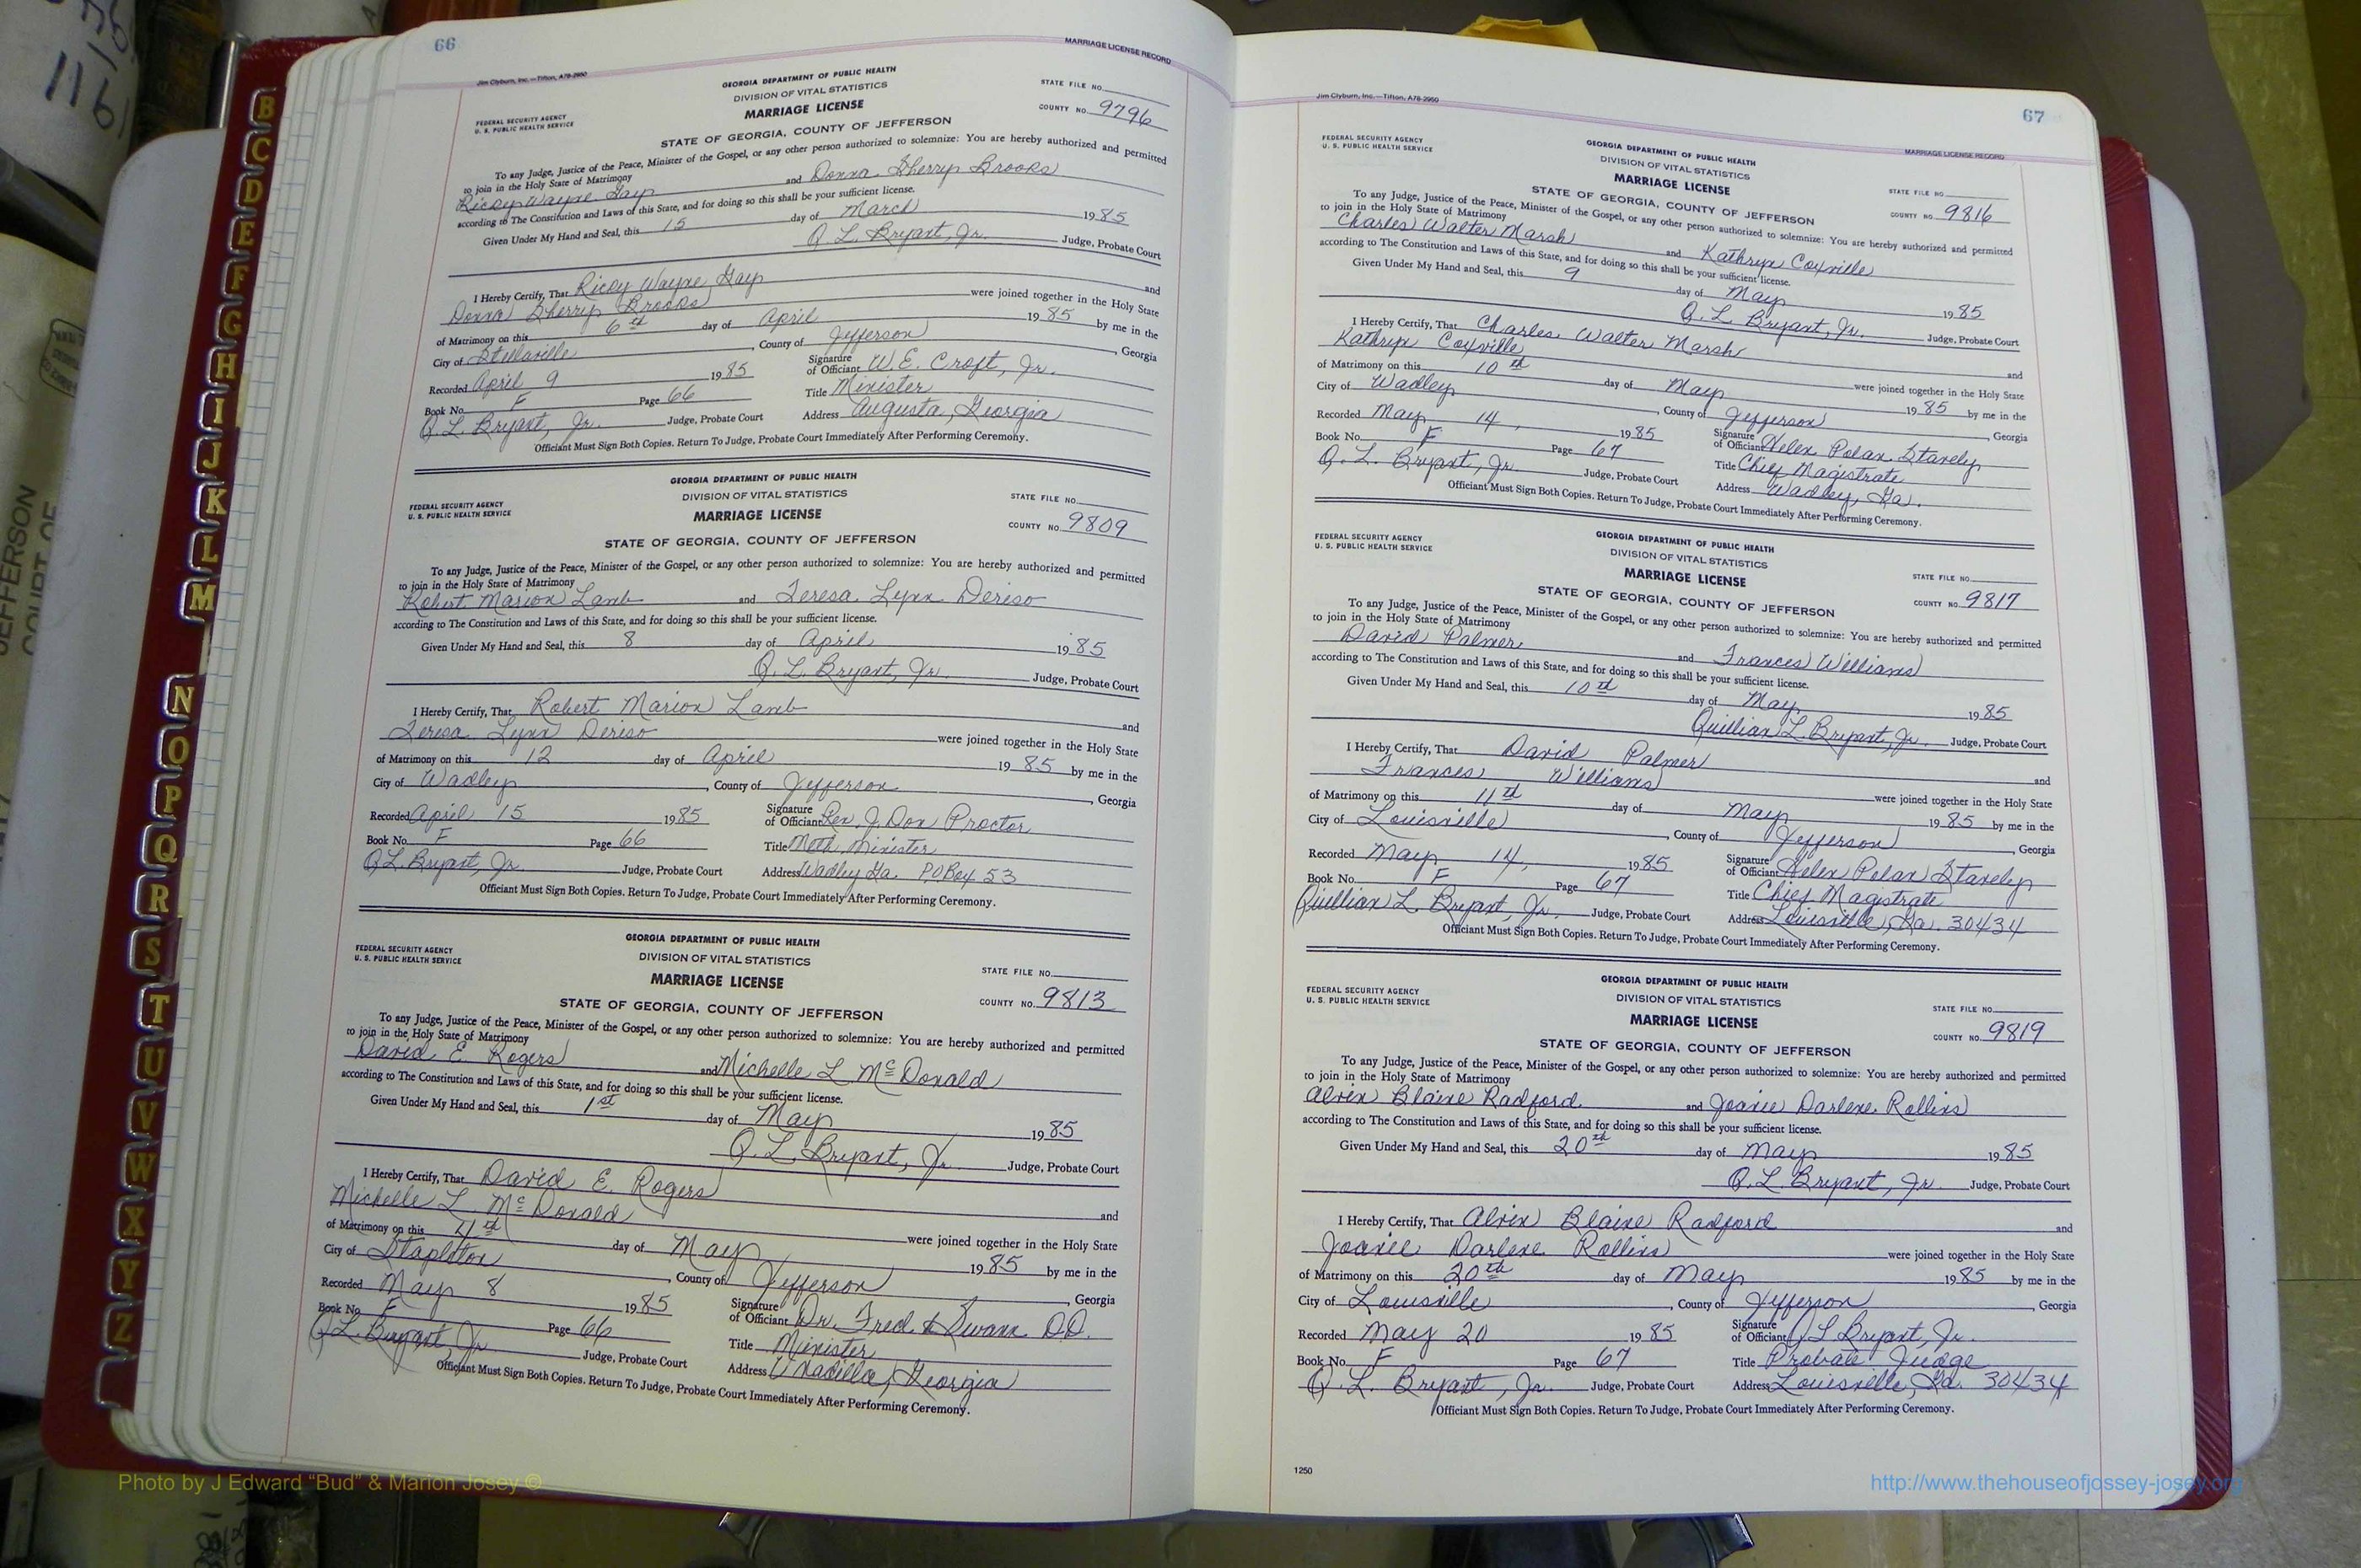 66
MARRIAGE LICENSE RECORD
Jim Clyburn, Inc.—Tifton, A78-2950
GEORGIA DEPARTMENT OF PUBLIC HEALTH
DIVISION OF VITAL STATISTICS
MARRIAGE LICENSE
FEDERAL SECURITY AGENCY
U. S. PUBLIC HEALTH SERVICE
STATE FILE NO.
COUNTY NO. 9796
STATE OF GEORGIA, COUNTY OF JEFFERSON
To any Judge, Justice of the Peace, Minister of the Gospel, or any other person authorized to solemnize: You are hereby authorized and permitted
to join in the Holy State of Matrimony
Ricky Wayne Gay and Donna Sherry Brooks
according to The Constitution and Laws of this State, and for doing so this shall be your sufficient license.
Given Under My Hand and Seal, this 15 day of March 1985
Q L. Bryant, Jr. Judge, Probate Court
I Hereby Certify, That Ricky Wayne Gay and
Donna Sherry Brooks were joined together in the Holy State
of Matrimony on this 6th day of April 1985 by me in the
City of Stellaville, County of Jefferson, Georgia
Recorded April 9 1985 Signature of Officiant W. E. Croft, Jr.
Book No. F Page 66 Title Minister
Q. L. Bryant, Jr. Judge, Probate Court Address Augusta, Georgia
Officiant Must Sign Both Copies. Return To Judge, Probate Court Immediately After Performing Ceremony.
GEORGIA DEPARTMENT OF PUBLIC HEALTH
DIVISION OF VITAL STATISTICS
MARRIAGE LICENSE
FEDERAL SECURITY AGENCY
U. S. PUBLIC HEALTH SERVICE
STATE FILE NO.
COUNTY NO. 9809
STATE OF GEORGIA, COUNTY OF JEFFERSON
To any Judge, Justice of the Peace, Minister of the Gospel, or any other person authorized to solemnize: You are hereby authorized and permitted
to join in the Holy State of Matrimony
Robert Marion Lamb and Teresa Lynn Deriso
according to The Constitution and Laws of this State, and for doing so this shall be your sufficient license.
Given Under My Hand and Seal, this 8 day of April 1985
Q. L. Bryant, Jr. Judge, Probate Court
I Hereby Certify, That Robert Marion Lamb and
Teresa Lynn Deriso were joined together in the Holy State
of Matrimony on this 12 day of April 1985 by me in the
City of Wadley, County of Jefferson, Georgia
Recorded April 15 1985 Signature of Officiant Rev. J. Don Proctor
Book No. F Page 66 Title Meth. Minister
Q L. Bryant, Jr. Judge, Probate Court Address Wadley Ga. P.O Box 53
Officiant Must Sign Both Copies. Return To Judge, Probate Court Immediately After Performing Ceremony.
GEORGIA DEPARTMENT OF PUBLIC HEALTH
DIVISION OF VITAL STATISTICS
MARRIAGE LICENSE
FEDERAL SECURITY AGENCY
U. S. PUBLIC HEALTH SERVICE
STATE FILE NO.
COUNTY NO. 9813
STATE OF GEORGIA, COUNTY OF JEFFERSON
To any Judge, Justice of the Peace, Minister of the Gospel, or any other person authorized to solemnize: You are hereby authorized and permitted
to join in the Holy State of Matrimony
David E. Rogers and Michelle L McDonald
according to The Constitution and Laws of this State, and for doing so this shall be your sufficient license.
Given Under My Hand and Seal, this 1st day of May 1985
Q. L. Bryant, Jr. Judge, Probate Court
I Hereby Certify, That David E. Rogers and
Michelle L. McDonald were joined together in the Holy State
of Matrimony on this 4th day of May 1985 by me in the
City of Stapleton, County of Jefferson, Georgia
Recorded May 8 1985 Signature of Officiant Dr. Fred Swann D.D.
Book No. F Page 66 Title Minister
Q L. Bryant, Jr. Judge, Probate Court Address Unadilla, Georgia
Officiant Must Sign Both Copies. Return To Judge, Probate Court Immediately After Performing Ceremony.
67
MARRIAGE LICENSE RECORD
Jim Clyburn, Inc.—Tifton, A78-2950
GEORGIA DEPARTMENT OF PUBLIC HEALTH
DIVISION OF VITAL STATISTICS
MARRIAGE LICENSE
FEDERAL SECURITY AGENCY
U. S. PUBLIC HEALTH SERVICE
STATE FILE NO.
COUNTY NO. 9816
STATE OF GEORGIA, COUNTY OF JEFFERSON
To any Judge, Justice of the Peace, Minister of the Gospel, or any other person authorized to solemnize: You are hereby authorized and permitted
to join in the Holy State of Matrimony
Charles Walter Marsh and Kathryn Coxville
according to The Constitution and Laws of this State, and for doing so this shall be your sufficient license.
Given Under My Hand and Seal, this 9 day of May 1985
Q. L. Bryant, Jr. Judge, Probate Court
I Hereby Certify, That Charles Walter Marsh and
Kathryn Coxville were joined together in the Holy State
of Matrimony on this 10th day of May 1985 by me in the
City of Wadley, County of Jefferson, Georgia
Recorded May 14, 1985 Signature of Officiant Helen Polan Stavely
Book No. F Page 67 Title Chief Magistrate
Q. L. Bryant, Jr. Judge, Probate Court Address Wadley, Ga.
Officiant Must Sign Both Copies. Return To Judge, Probate Court Immediately After Performing Ceremony.
GEORGIA DEPARTMENT OF PUBLIC HEALTH
DIVISION OF VITAL STATISTICS
MARRIAGE LICENSE
FEDERAL SECURITY AGENCY
U. S. PUBLIC HEALTH SERVICE
STATE FILE NO.
COUNTY NO. 9817
STATE OF GEORGIA, COUNTY OF JEFFERSON
To any Judge, Justice of the Peace, Minister of the Gospel, or any other person authorized to solemnize: You are hereby authorized and permitted
to join in the Holy State of Matrimony
David Palmer and Frances Williams
according to The Constitution and Laws of this State, and for doing so this shall be your sufficient license.
Given Under My Hand and Seal, this 10th day of May 1985
Quillian L. Bryant, Jr. Judge, Probate Court
I Hereby Certify, That David Palmer and
Frances Williams were joined together in the Holy State
of Matrimony on this 11th day of May 1985 by me in the
City of Louisville, County of Jefferson, Georgia
Recorded May 14, 1985 Signature of Officiant Helen Polan Stavely
Book No. F Page 67 Title Chief Magistrate
Quillian L. Bryant, Jr. Judge, Probate Court Address Louisville, Ga. 30434
Officiant Must Sign Both Copies. Return To Judge, Probate Court Immediately After Performing Ceremony.
GEORGIA DEPARTMENT OF PUBLIC HEALTH
DIVISION OF VITAL STATISTICS
MARRIAGE LICENSE
FEDERAL SECURITY AGENCY
U. S. PUBLIC HEALTH SERVICE
STATE FILE NO.
COUNTY NO. 9819
STATE OF GEORGIA, COUNTY OF JEFFERSON
To any Judge, Justice of the Peace, Minister of the Gospel, or any other person authorized to solemnize: You are hereby authorized and permitted
to join in the Holy State of Matrimony
Alvin Blaine Radford and Joanie Darlene Rollins
according to The Constitution and Laws of this State, and for doing so this shall be your sufficient license.
Given Under My Hand and Seal, this 20th day of May 1985
Q. L. Bryant, Jr. Judge, Probate Court
I Hereby Certify, That Alvin Blaine Radford and
Joanie Darlene Rollins were joined together in the Holy State
of Matrimony on this 20th day of May 1985 by me in the
City of Louisville, County of Jefferson, Georgia
Recorded May 20 1985 Signature of Officiant Q L Bryant, Jr.
Book No. F Page 67 Title Probate Judge
Q. L. Bryant, Jr. Judge, Probate Court Address Louisville, Ga. 30434
Officiant Must Sign Both Copies. Return To Judge, Probate Court Immediately After Performing Ceremony.
1250
B
C
D
E
F
G
H
I
J
K
L
M
N
O
P
Q
R
S
T
U
V
W
X
Y
Z
JEFFERSON
COURT OF
Photo by J Edward “Bud” & Marion Josey ©
http://www.thehouseofjossey-josey.org